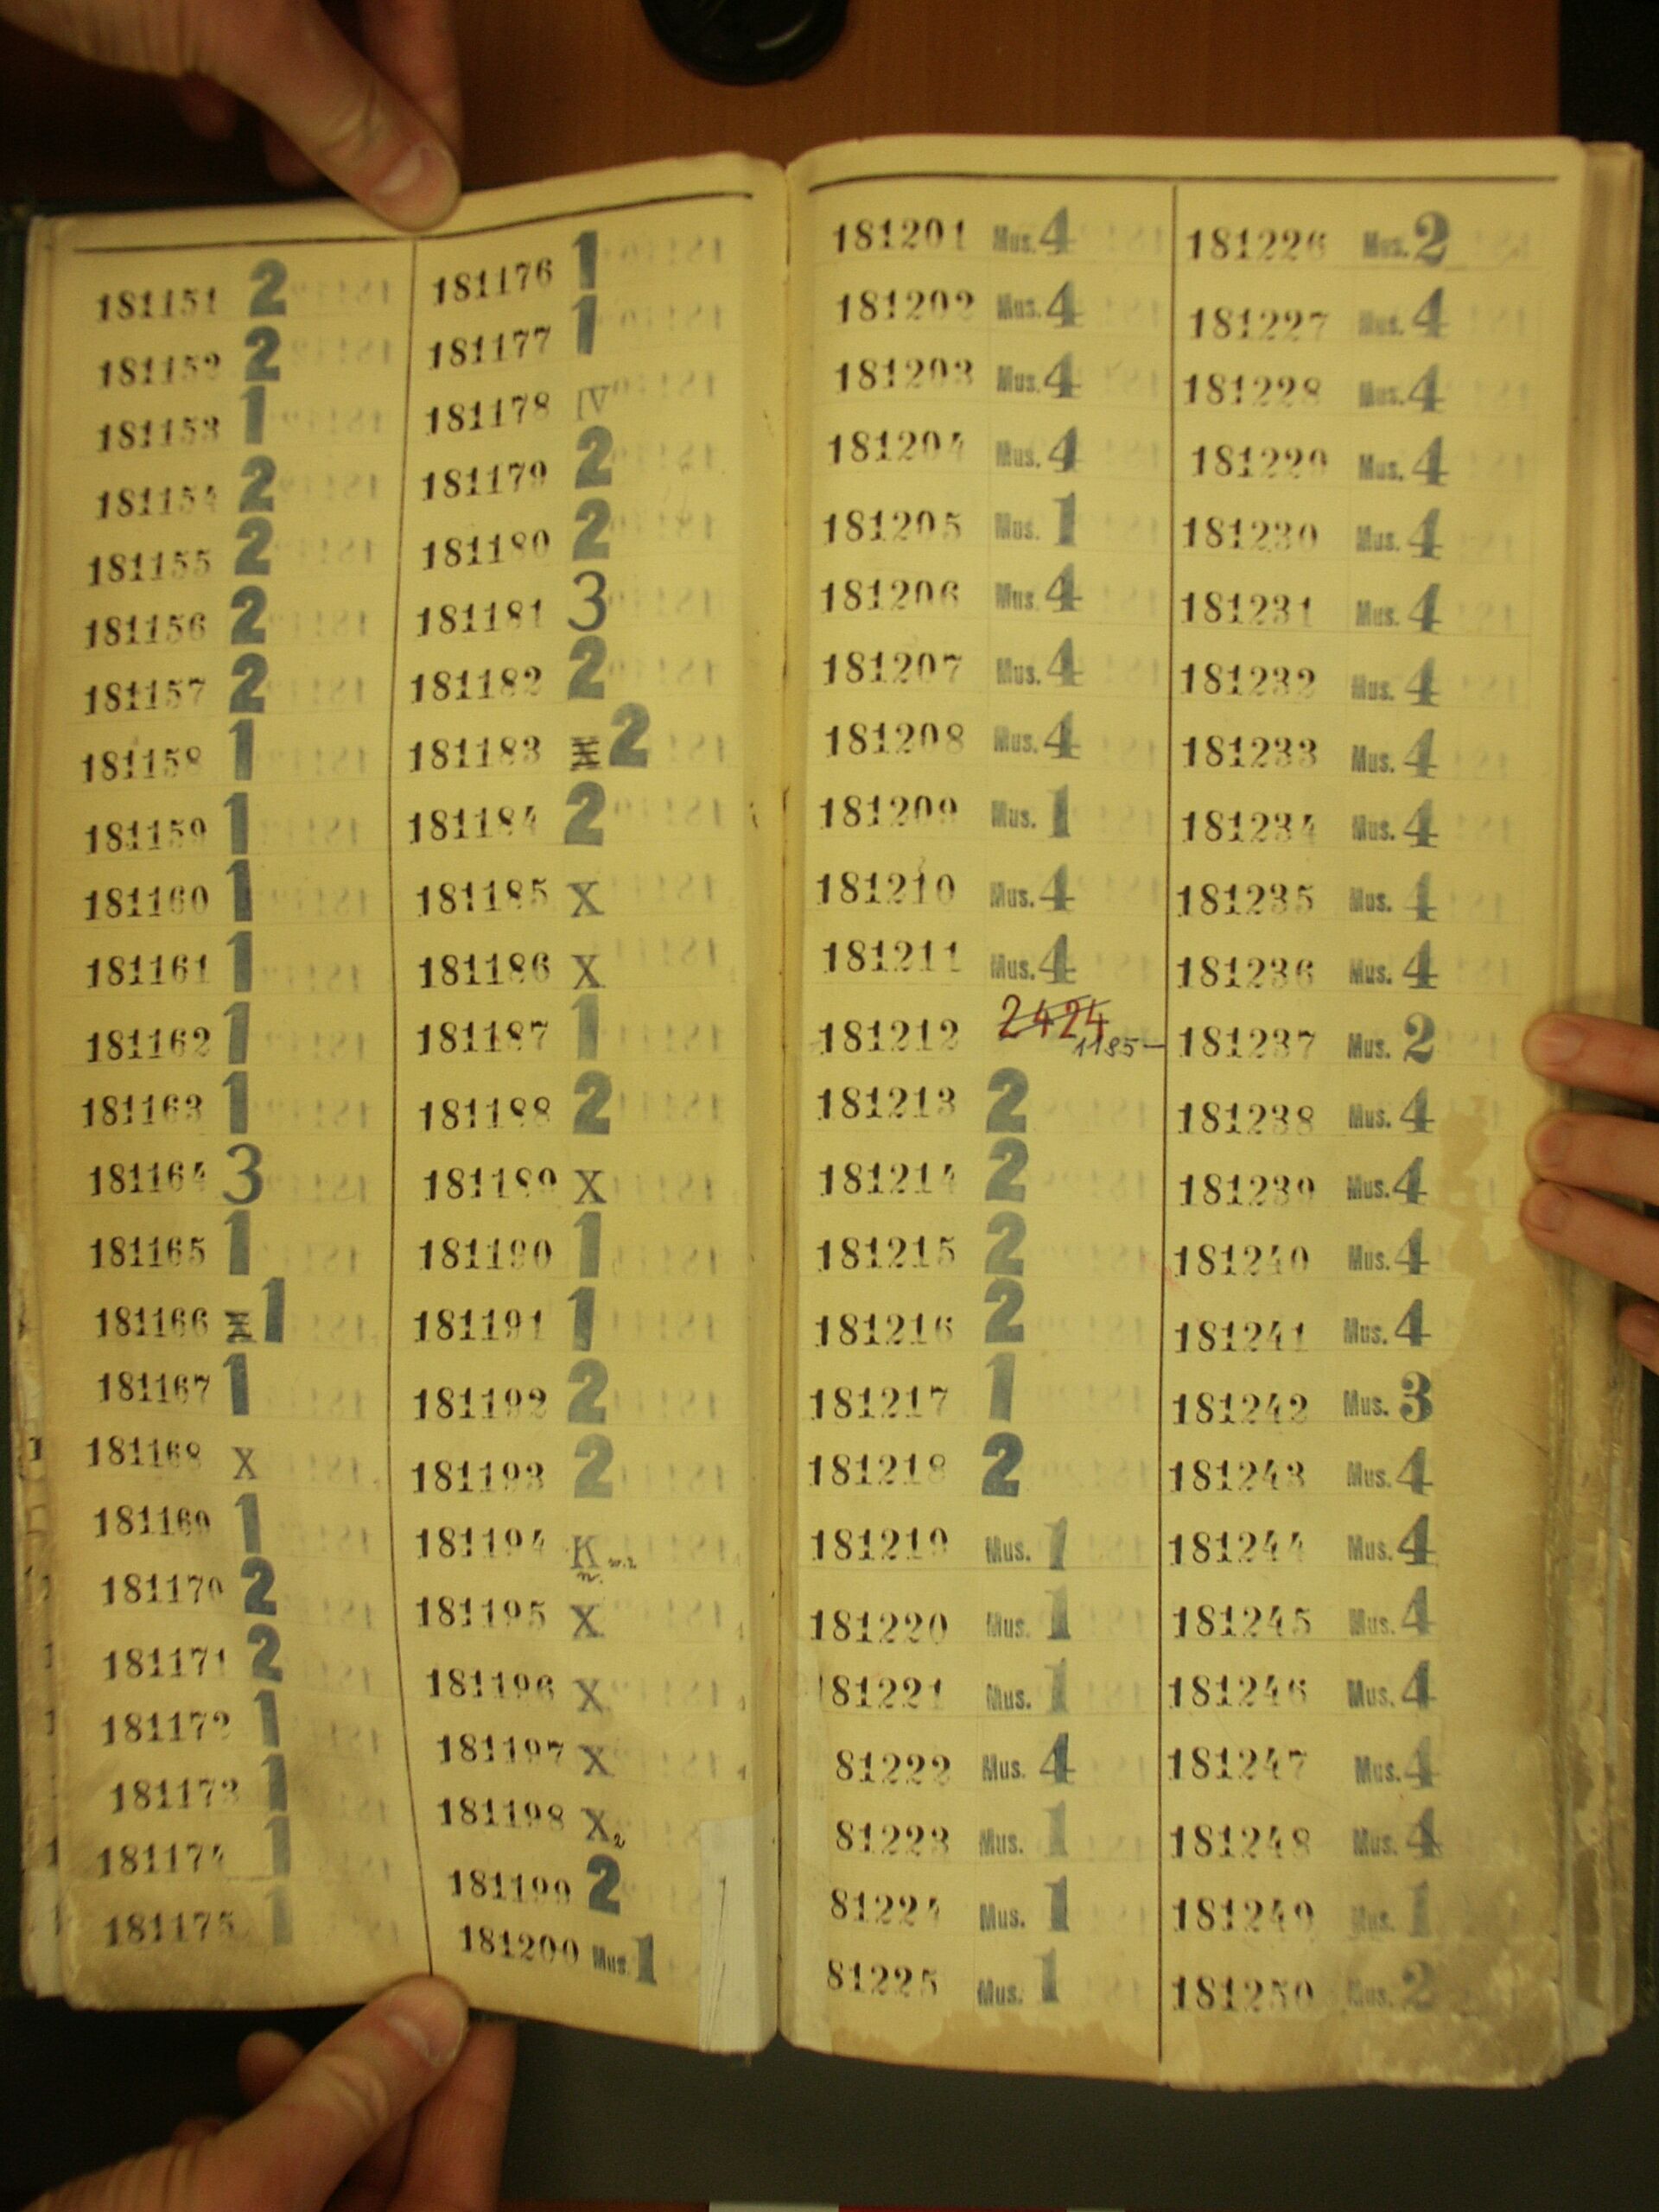 181151 2
181152 2
181153 1
181154 2
181155 2
181156 2
181157 2
181158 1
181159 1
181160 1
181161 1
181162 1
181163 1
181164 3
181165 1
181166 X 1
181167 1
181168 X
181169 1
181170 2
181171 2
181172 1
181173 1
181174 1
181175 1
181176 1
181177 1
181178 IV
181179 2
181180 2
181181 3
181182 2
181183 2
181184 2
181185 X
181186 X
181187 1
181188 2
181189 X
181190 1
181191 1
181192 2
181193 2
181194 K
181195 X
181196 X
181197 X
181198 X2
181199 2
181200 Mus. 1
181201 Mus. 4
181202 Mus. 4
181203 Mus. 4
181204 Mus. 4
181205 Mus. 1
181206 Mus. 4
181207 Mus. 4
181208 Mus. 4
181209 Mus. 1
181210 Mus. 4
181211 Mus. 4
181212 2424 1185–
181213 2
181214 2
181215 2
181216 2
181217 1
181218 2
181219 Mus. 1
181220 Mus. 1
181221 Mus. 1
81222 Mus. 4
81223 Mus. 1
81224 Mus. 1
81225 Mus. 1
181226 Mus. 2
181227 Mus. 4
181228 Mus. 4
181229 Mus. 4
181230 Mus. 4
181231 Mus. 4
181232 Mus. 4
181233 Mus. 4
181234 Mus. 4
181235 Mus. 4
181236 Mus. 4
181237 Mus. 2
181238 Mus. 4
181239 Mus. 4
181240 Mus. 4
181241 Mus. 4
181242 Mus. 3
181243 Mus. 4
181244 Mus. 4
181245 Mus. 4
181246 Mus. 4
181247 Mus. 4
181248 Mus. 4
181249 Mus. 1
181250 Mus. 2